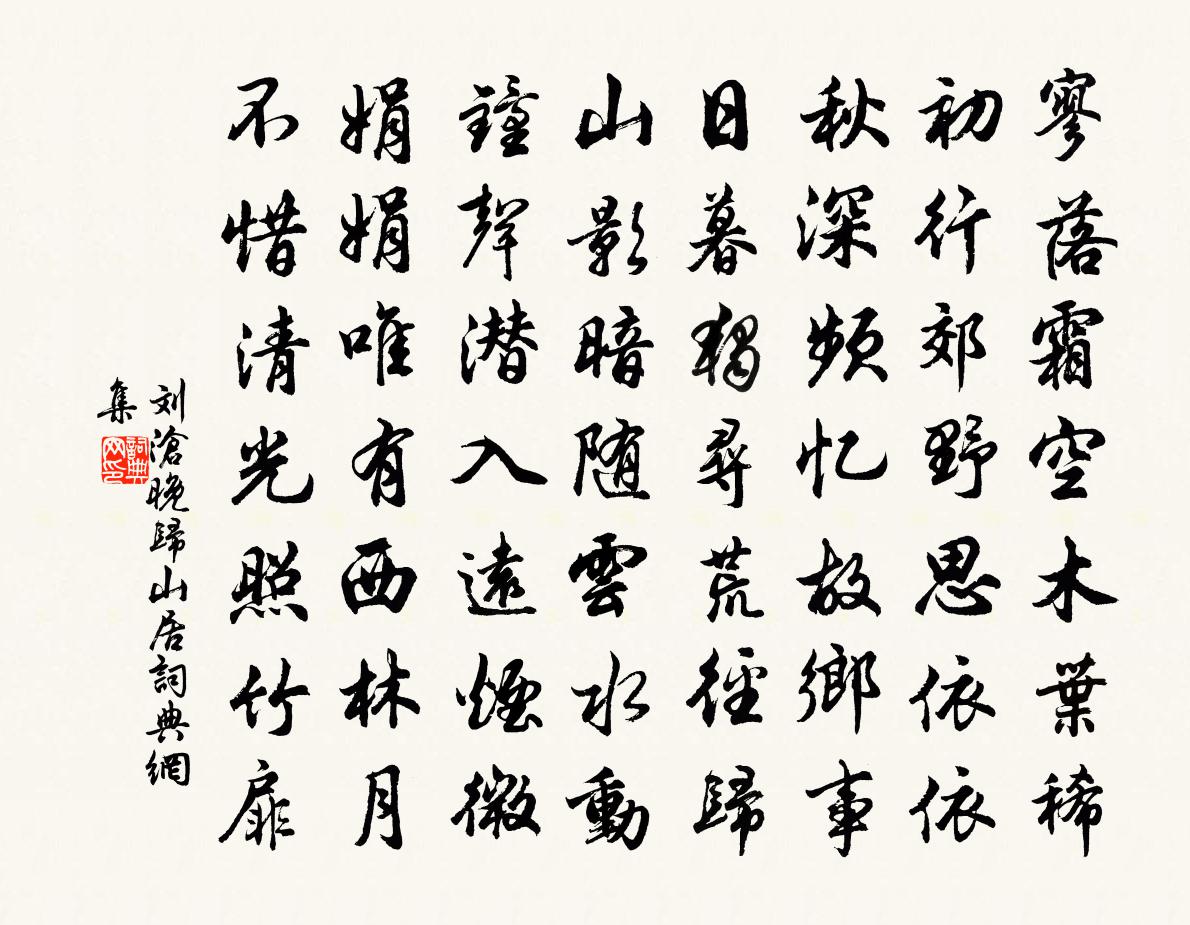 寥落霜空木葉稀
初行郊野思依依
秋深頻忆故鄉事
日暮獨尋荒徑歸
山影暗随雲水動
鐘聲潜入遠煙微
娟娟唯有西林月
不惜清光照竹扉
刘滄晚歸山居詞典網
集
詞典网印